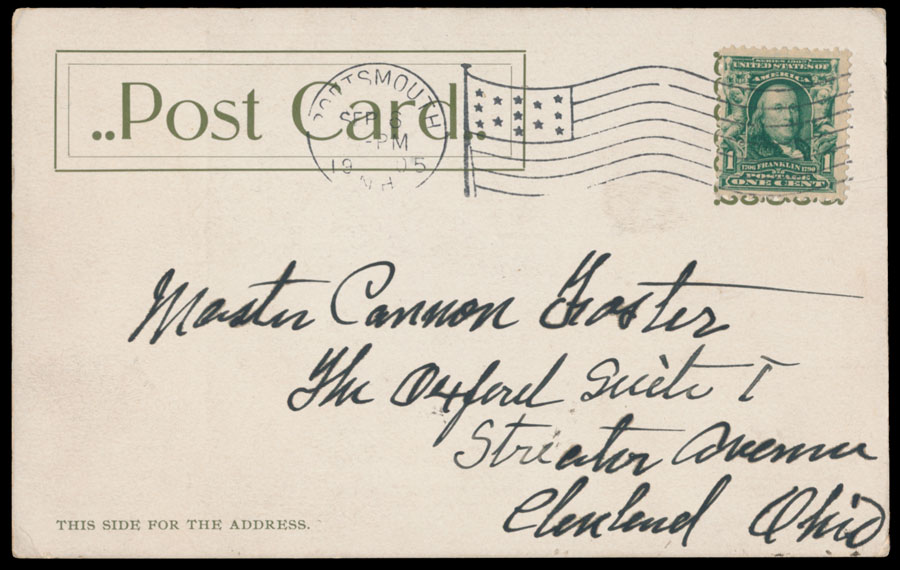 ..Post Card..
PORTSMOUTH
SEP 6
-PM
19 05
N.H.
SERIES 1902
UNITED STATES OF
AMERICA
1 1
1706 FRANKLIN 1790
POSTAGE
ONE CENT
Master Cannon Foster
The Oxford Suite I
Streator Avenue
Cleveland Ohio
THIS SIDE FOR THE ADDRESS.